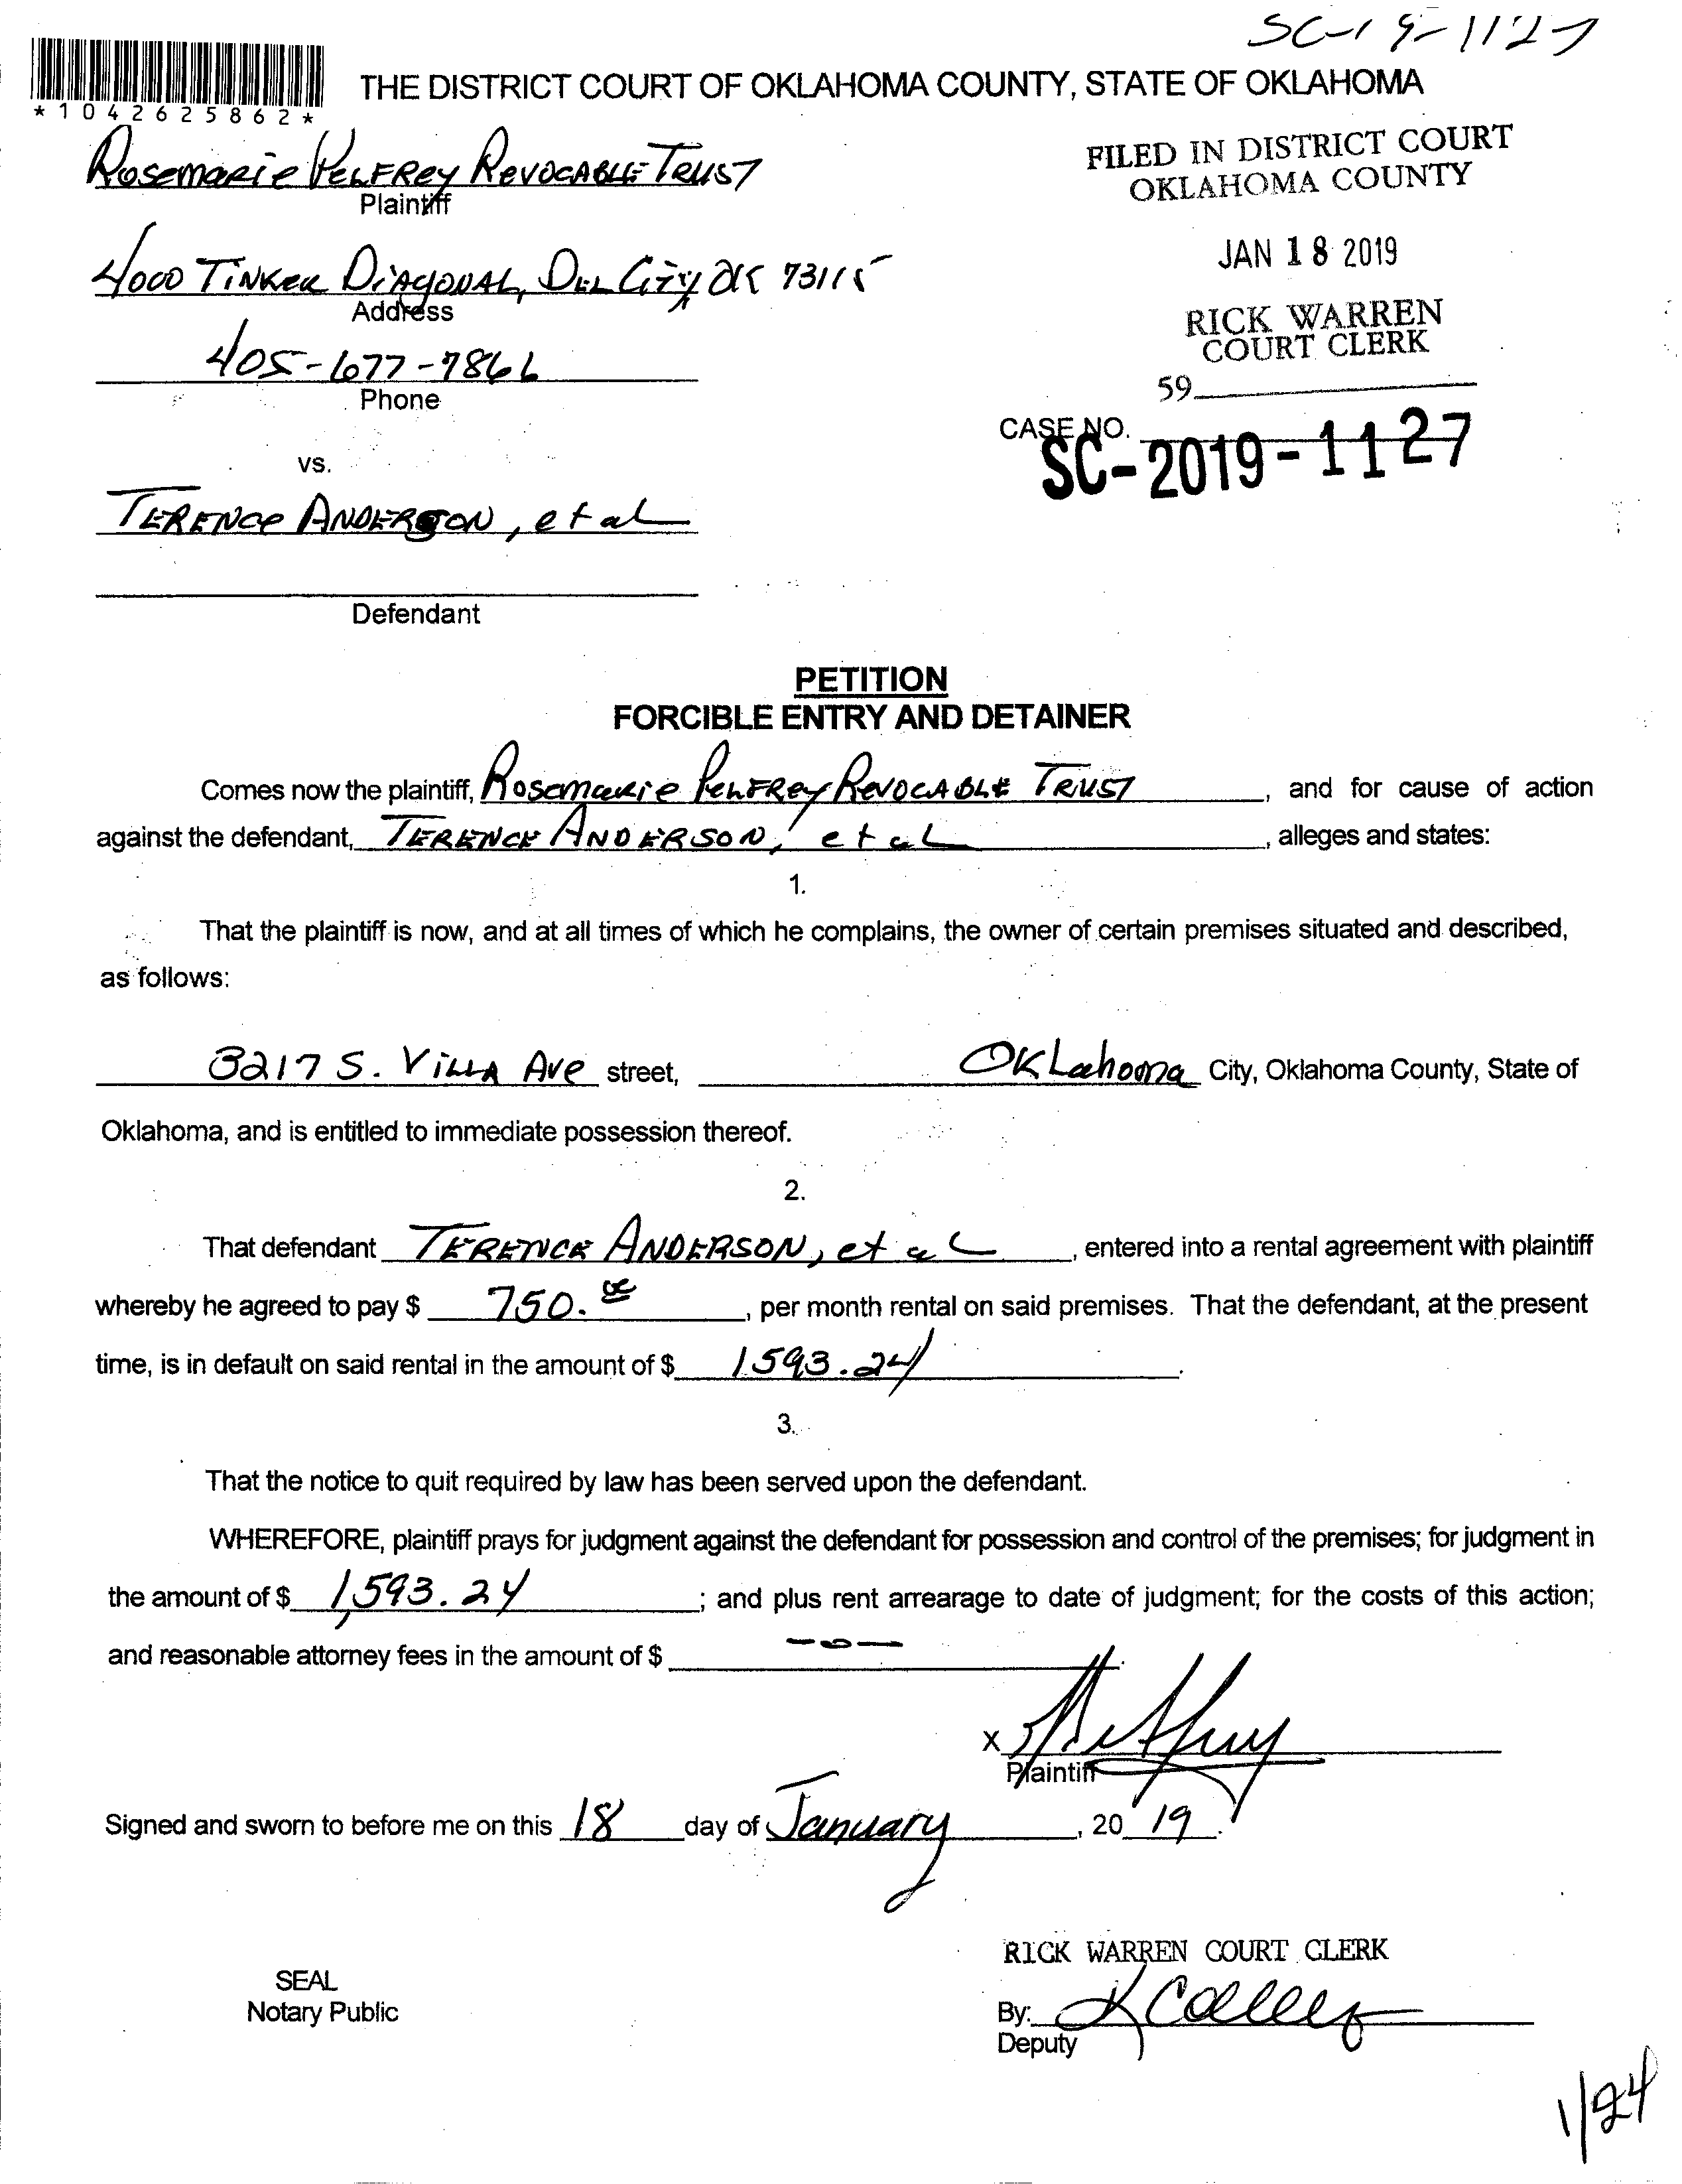 SC-19-1127
*1042625862*
THE DISTRICT COURT OF OKLAHOMA COUNTY, STATE OF OKLAHOMA
Rosemarie Pelfrey Revocable Trust
Plaintiff
FILED IN DISTRICT COURT
OKLAHOMA COUNTY
4000 Tinker Diagonal, Del City OK 73115
Address
JAN 18 2019
405-677-7866
Phone
RICK WARREN
COURT CLERK
59
CASE NO.
SC-2019-1127
vs.
Terence Anderson, et al
Defendant
PETITION
FORCIBLE ENTRY AND DETAINER
Comes now the plaintiff, Rosemarie Pelfrey Revocable Trust, and for cause of action
against the defendant, Terence Anderson, et al, alleges and states:
1.
That the plaintiff is now, and at all times of which he complains, the owner of certain premises situated and described,
as follows:
3217 S. Villa Ave street, Oklahoma City, Oklahoma County, State of
Oklahoma, and is entitled to immediate possession thereof.
2.
That defendant Terence Anderson, et al, entered into a rental agreement with plaintiff
whereby he agreed to pay $ 750.00, per month rental on said premises. That the defendant, at the present
time, is in default on said rental in the amount of $ 1593.24.
3.
That the notice to quit required by law has been served upon the defendant.
WHEREFORE, plaintiff prays for judgment against the defendant for possession and control of the premises; for judgment in
the amount of $ 1,593.24; and plus rent arrearage to date of judgment; for the costs of this action;
and reasonable attorney fees in the amount of $ -0-.
X
Plaintiff
Signed and sworn to before me on this 18 day of January, 20 19.
RICK WARREN COURT CLERK
SEAL
Notary Public
By:
Deputy
1/24